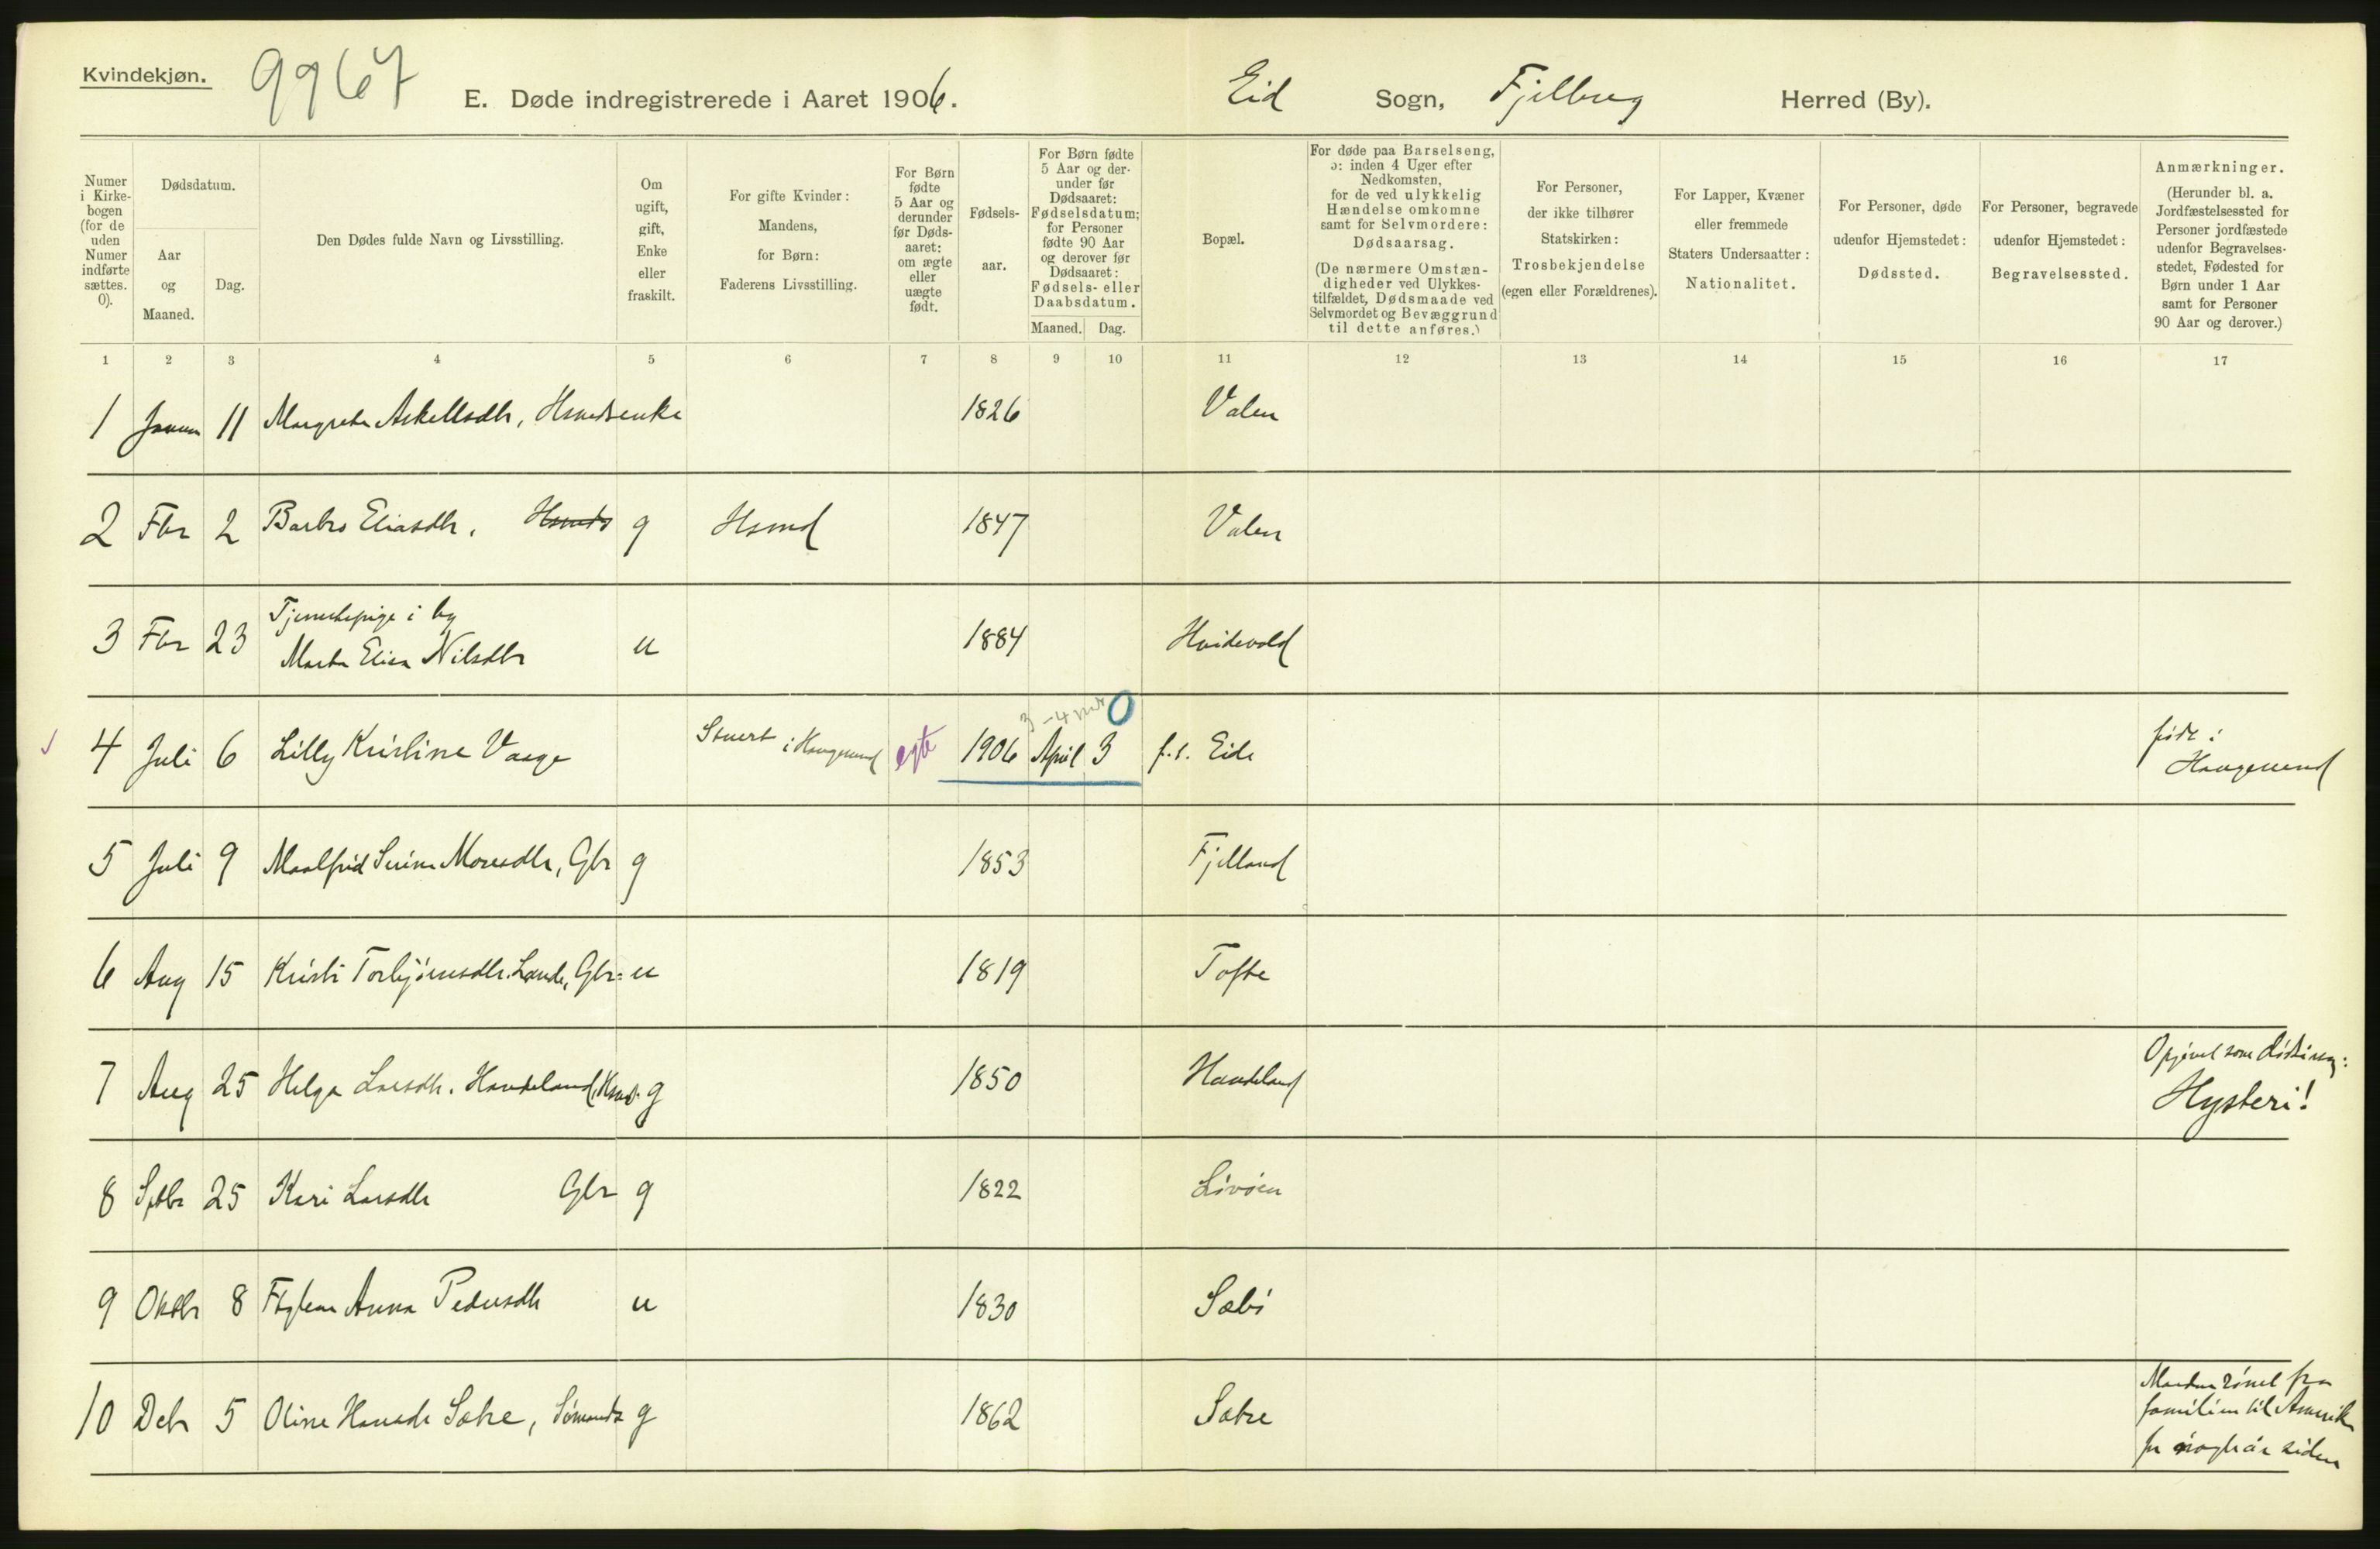 Kvindekjøn.
9967
E. Døde indregistrerede i Aaret 1906.
Eid Sogn, Fjelberg Herred (By).
Numer i Kirkebogen (for de uden Numer indførte sættes. 0).
Dødsdatum.
Aar og Maaned.
Dag.
Den Dødes fulde Navn og Livsstilling.
Om ugift, gift, Enke eller fraskilt.
For gifte Kvinder: Mandens, for Børn: Faderens Livsstilling.
For Børn fødte 5 Aar og derunder før Dødsaaret: om ægte eller uægte født.
Fødselsaar.
For Børn fødte 5 Aar og derunder før Dødsaaret: Fødselsdatum; for Personer fødte 90 Aar og derover før Dødsaaret: Fødsels- eller Daabsdatum.
Maaned. Dag.
Bopæl.
For døde paa Barselseng, ɔ: inden 4 Uger efter Nedkomsten, for de ved ulykkelig Hændelse omkomne samt for Selvmordere: Dødsaarsag.
(De nærmere Omstændigheder ved Ulykkestilfældet, Dødsmaade ved Selvmordet og Bevæggrund til dette anføres.)
For Personer, der ikke tilhører Statskirken: Trosbekjendelse (egen eller Forældrenes).
For Lapper, Kvæner eller fremmede Staters Undersaatter: Nationalitet.
For Personer, døde udenfor Hjemstedet: Dødssted.
For Personer, begravede udenfor Hjemstedet: Begravelsessted.
Anmærkninger.
(Herunder bl. a. Jordfæstelsessted for Personer jordfæstede udenfor Begravelsesstedet, Fødested for Børn under 1 Aar samt for Personer 90 Aar og derover.)
1 2 3 4 5 6 7 8 9 10 11 12 13 14 15 16 17
1 Januar 11 Margreta Askellsdtr, Hsmdsenke 1826 Valen
2 Fbr 2 Barbro Eliasdtr. Hsmds g Hsmd 1847 Valen
3 Fbr 23 Tjenestepige i by
Marta Elisa Nilsdtr u 1884 Hvidevold
3-4 mdr 0
4 Juli 6 Lilly Kristine Vaage Stuert i Haugesund egte 1906 April 3 f.t. Eide født i
Haugesund
5 Juli 9 Maalfrid Serine Monsdtr, Gbr g 1853 Fjelland
6 Aug 15 Kristi Torbjörnsdtr. Lande, Gbr: u 1819 Tofte
7 Aug 25 Helga Larsdtr. Handeland, Hsmd. g 1850 Handeland Opgivet som dödsårsag:
Hysteri!
8 Sptbr 25 Kari Larsdtr Gbr g 1822 Lövöen
9 Oktbr 8 Anna Pedersdtr u 1830 Sæbö
10 Debr 5 Oline Hansdtr Sætre, Sömands g 1862 Sætre Manden römt fra
familien til Amerika
for nogle år siden